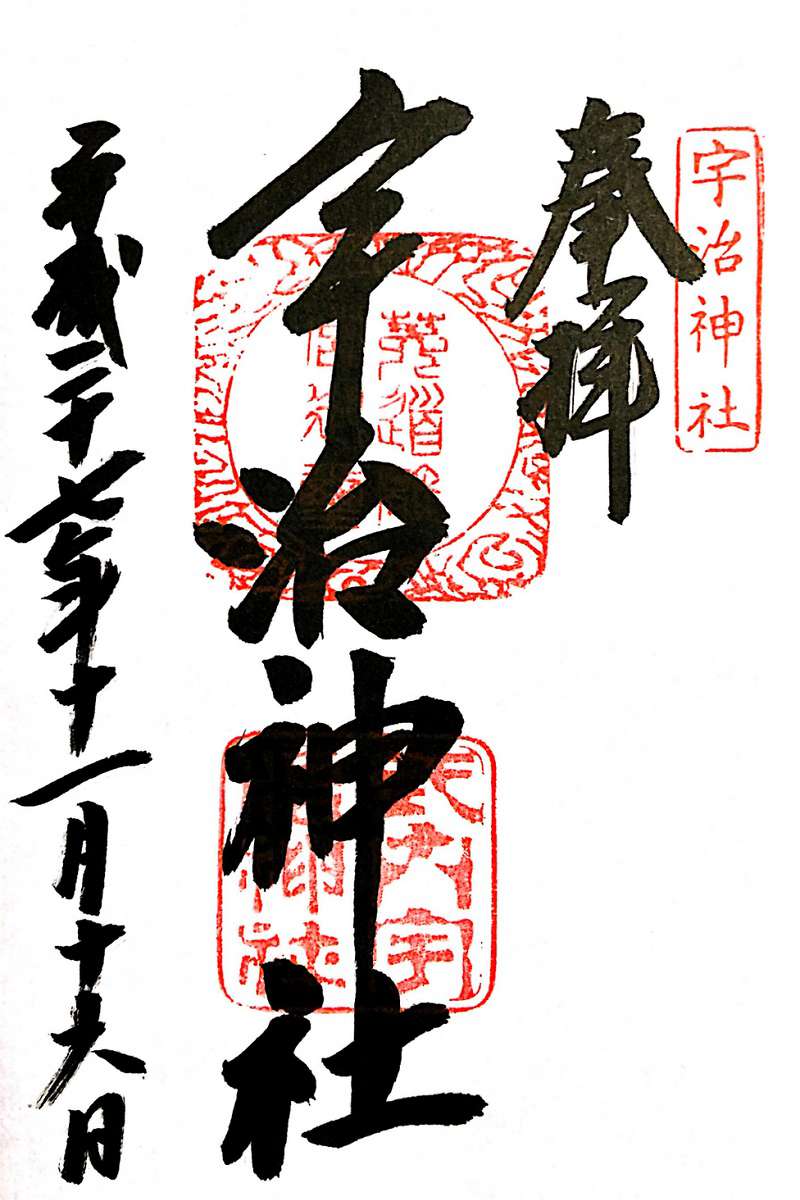 宇治神社
奉拝
宇治神社
菟道
平成二十七年十一月十六日